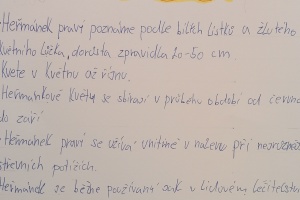 Heřmánek pravý poznáme podle bílých lístků a žlutého
květního lůžka, dorůstá zpravidla 20-50 cm.
Kvete v květnu až říjnu.
Heřmánkové květy se sbírají v průběhu období od června
do září
Heřmánek pravý se užívá vnitřně v nálevu při
střevních potížích.
Heřmánek je běžně používaný v lidovém léčitelství